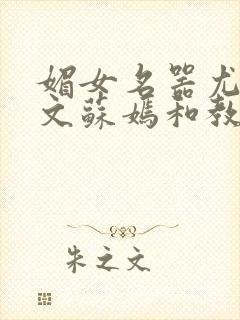 媚女名器尤
文蘇媽和教
朱之文